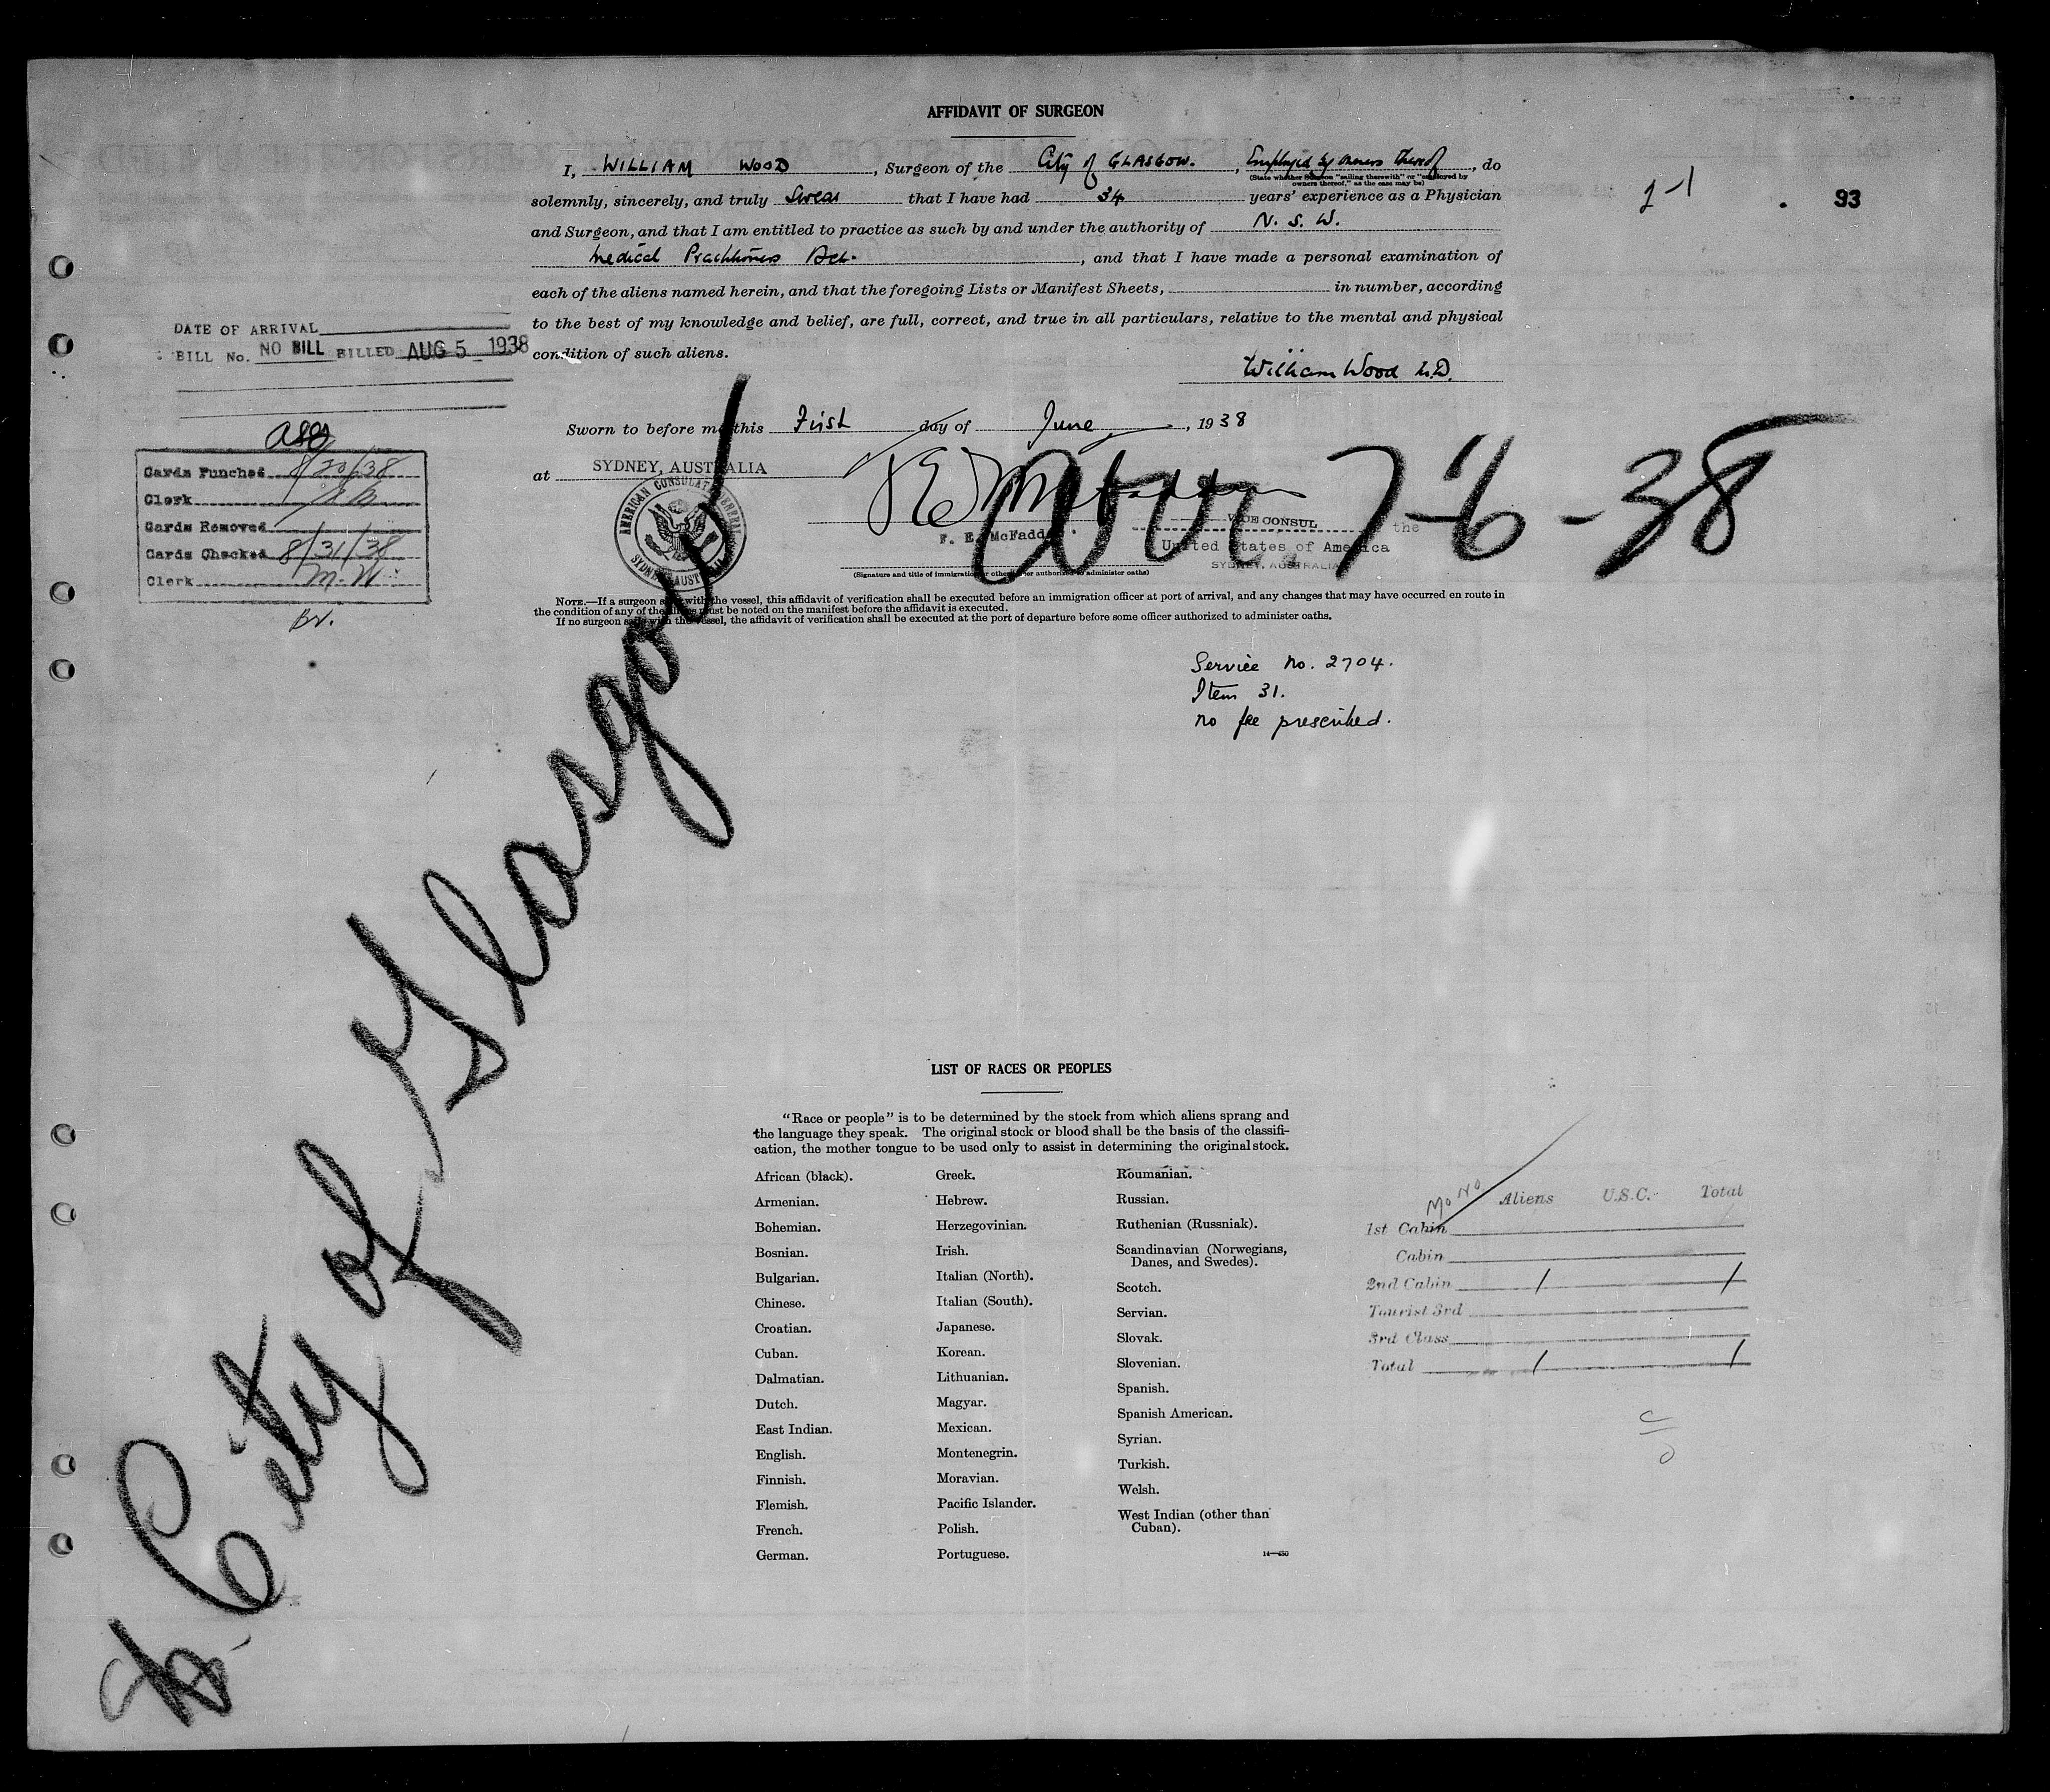 AFFIDAVIT OF SURGEON
I, WILLIAM WOOD, Surgeon of the City of GLASGOW., Employed by owners thereof, do
(State whether Surgeon "sailing therewith" or "employed by
owners thereof," as the case may be)
solemnly, sincerely, and truly Swear that I have had 34 years' experience as a Physician
1-1
93
and Surgeon, and that I am entitled to practice as such by and under the authority of N. S. W.
Medical Practitioners Act., and that I have made a personal examination of
each of the aliens named herein, and that the foregoing Lists or Manifest Sheets, in number, according
to the best of my knowledge and belief, are full, correct, and true in all particulars, relative to the mental and physical
condition of such aliens.
DATE OF ARRIVAL
BILL No. NO BILL BILLED AUG 5 1938
William Wood M.D.
Sworn to before me this First day of June, 1938
at SYDNEY, AUSTRALIA
AMERICAN CONSULATE GENERAL
SYDNEY, AUSTRALIA
Cards Punched 8/20/38
Clerk
Cards Removed
Cards Checked 8/31/38
Clerk M.W.
Br.
Arr 7-6-38
F. E. McFadden.
VICE CONSUL
the
United States of America
SYDNEY, AUSTRALIA
(Signature and title of immigration or other officer authorized to administer oaths)
NOTE.—If a surgeon sails with the vessel, this affidavit of verification shall be executed before an immigration officer at port of arrival, and any changes that may have occurred en route in
the condition of any of the aliens must be noted on the manifest before the affidavit is executed.
If no surgeon sails with the vessel, the affidavit of verification shall be executed at the port of departure before some officer authorized to administer oaths.
Service No. 2704.
Item 31.
no fee prescribed.
City of Glasgow
LIST OF RACES OR PEOPLES
"Race or people" is to be determined by the stock from which aliens sprang and
the language they speak. The original stock or blood shall be the basis of the classifi-
cation, the mother tongue to be used only to assist in determining the original stock.
African (black).
Armenian.
Bohemian.
Bosnian.
Bulgarian.
Chinese.
Croatian.
Cuban.
Dalmatian.
Dutch.
East Indian.
English.
Finnish.
Flemish.
French.
German.
Greek.
Hebrew.
Herzegovinian.
Irish.
Italian (North).
Italian (South).
Japanese.
Korean.
Lithuanian.
Magyar.
Mexican.
Montenegrin.
Moravian.
Pacific Islander.
Polish.
Portuguese.
Roumanian.
Russian.
Ruthenian (Russniak).
Scandinavian (Norwegians,
Danes, and Swedes).
Scotch.
Servian.
Slovak.
Slovenian.
Spanish.
Spanish American.
Syrian.
Turkish.
Welsh.
West Indian (other than
Cuban).
14—430
Mo No
Aliens U.S.C. Total
1st Cabin
Cabin
2nd Cabin 1 1
Tourist 3rd
3rd Class
Total 1 1